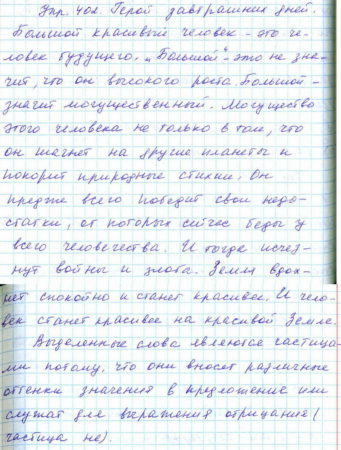 Упр. 402. Герой завтрашних дней.
Большой красивый человек - это че-
ловек будущего. „Большой" - это не зна-
чит, что он высокого роста. Большой -
значит могущественный. Могущество
этого человека не только в том, что
он шагнет на другие планеты и
покорит природные стихии. Он
прежде всего победит свои недо-
статки, от которых сейчас беды у
всего человечества. И тогда исчез-
нут войны и злоба. Земля вздох-
нет спокойно и станет красивее. И чело-
век станет красивее на красивой Земле.
Выделенные слова являются частица-
ми потому, что они вносят различные
оттенки значения в предложение или
служат для выражения отрицания (
частица не).